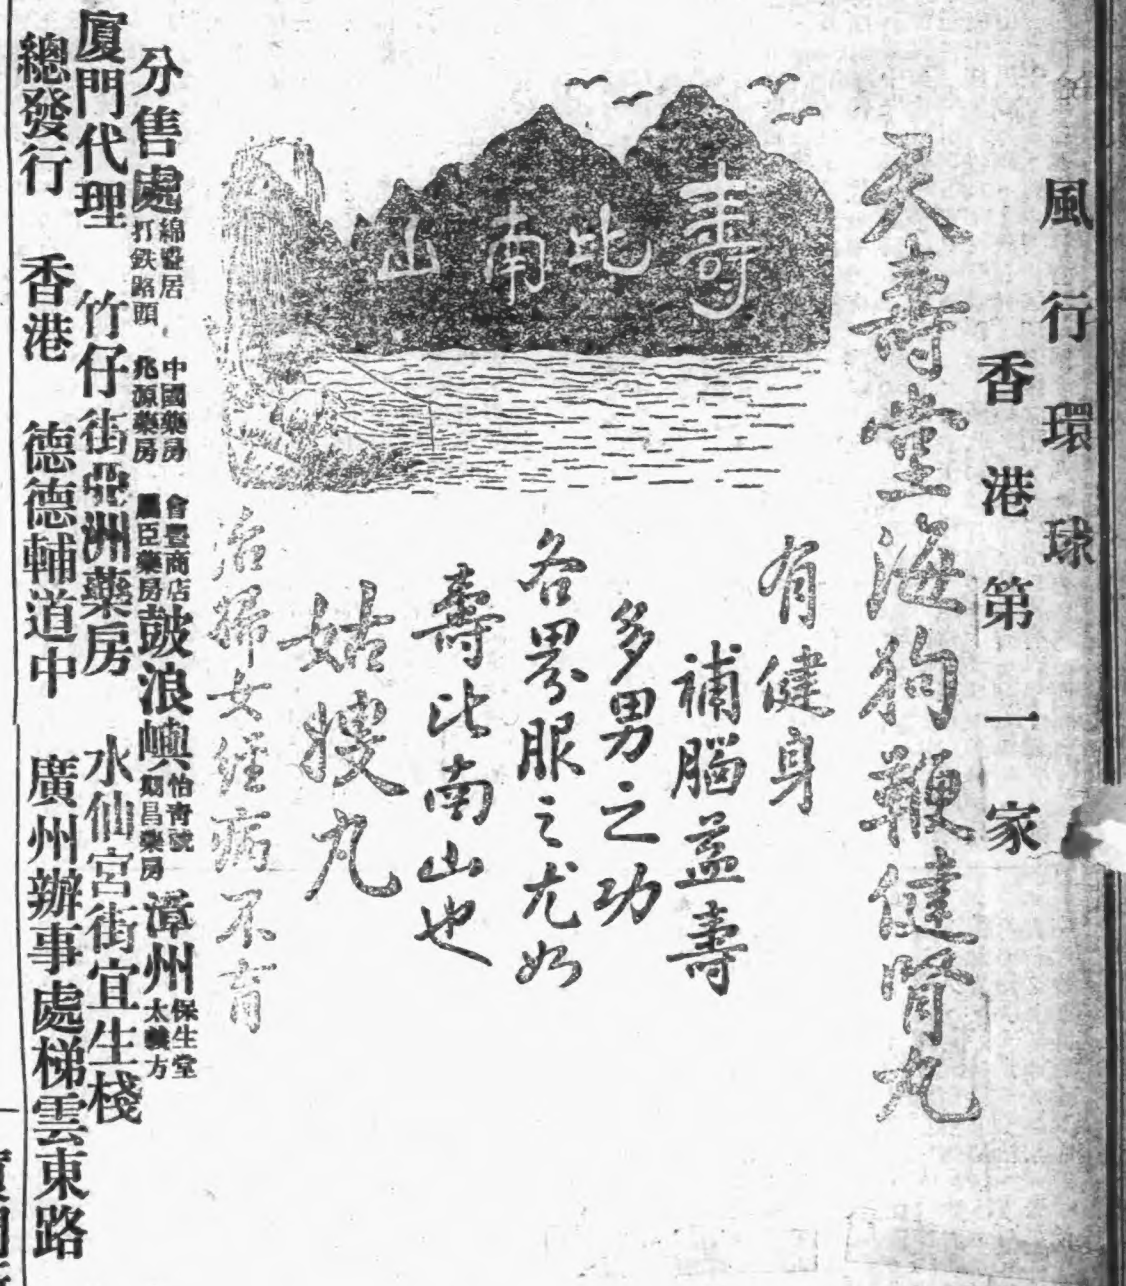 風行環球
香港第一家
天壽堂海狗鞭健腎丸
壽比南山
有健身
補腦益壽
多男之功
各界服之尤如
壽比南山也
姑嫂丸
治婦女經病不育
分售處
打鉄路頭
中國藥房
兆源藥房
會豐商店
臣藥房
鼓浪嶼
怡青號
昌藥房
漳州
保生堂
太義方
廈門代理 竹仔街亞洲藥房 水仙宮街宜生棧
總發行 香港 德德輔道中 廣州辦事處梯雲東路